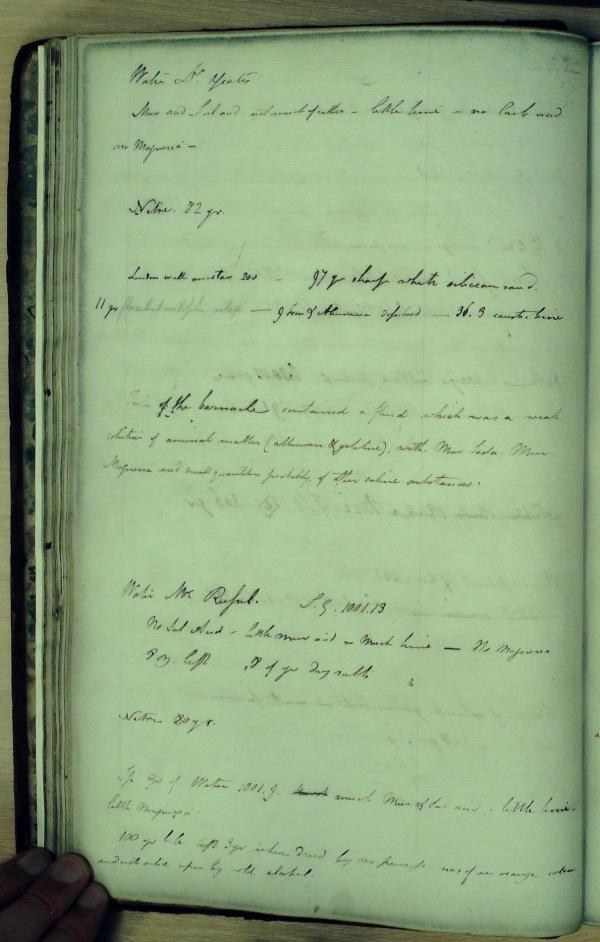 Water Dr. Yeates
Mur and Sul acid not much of either - little lime - no Carb acid
no Magnesia -
Nitre. 82 gr.
London wall mortar 200 - 97 gr sharp white siliceous sand.
11 gr - 9 Iron & Alumina - 36.3 caustic lime
of the barnacle contained a fluid which was a weak
solution of animal matter (albumen & gelatine), with Mur Soda. Mur
Magnesia and small quantities probably of other saline substances.
Water Mr. Russel. S.G. 1001.13
No Sul Acid - little mur acid - Much lime - No Magnesia
8 oz. left gr dry salts
Nitre 80 gr.
Sp Gr of Water 1001.9. much Mur & Sul acid - little lime
little Magnesia.
100 gr left 3 gr when dried by air pump. was of an orange colour
and not acted upon by cold alcohol